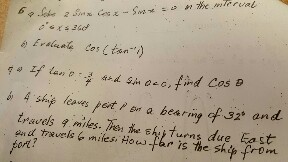 6 a Solve 2 Sinx Cosx - Sinx = 0 in the interval
0° ≤ x ≤ 360°
b) Evaluate Cos (tan⁻¹)
7 a If tan θ = 3/4 and Sin θ < 0, find Cos θ
b) A ship leaves port P on a bearing of 32° and
travels 9 miles. Then the ship turns due East
and travels 6 miles. How far is the ship from
port?